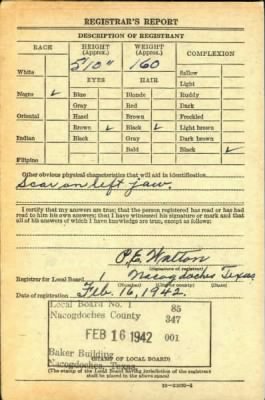 REGISTRAR'S REPORT
DESCRIPTION OF REGISTRANT
RACE HEIGHT (Approx.) WEIGHT (Approx.) COMPLEXION
5'10" 160
White Sallow
EYES HAIR Light
Negro ✓ Blue Blonde Ruddy
Gray Red Dark
Oriental Hazel Brown Freckled
Brown ✓ Black ✓ Light brown
Indian Black Gray Dark brown
Bald Black ✓
Filipino
Other obvious physical characteristics that will aid in identification
Scar on left jaw.
I certify that my answers are true; that the person registered has read or has had
read to him his own answers; that I have witnessed his signature or mark and that
all of his answers of which I have knowledge are true, except as follows:
P.E. Walton
(Signature of registrar)
Registrar for Local Board 1 Nacogdoches Texas
(Number) (City or county) (State)
Date of registration Feb. 16, 1942.
Local Board No. 1 85
Nacogdoches County 347
FEB 16 1942 001
Baker Building
Nacogdoches, Texas
(STAMP OF LOCAL BOARD)
(The stamp of the Local Board having jurisdiction of the registrant
shall be placed in the above space)